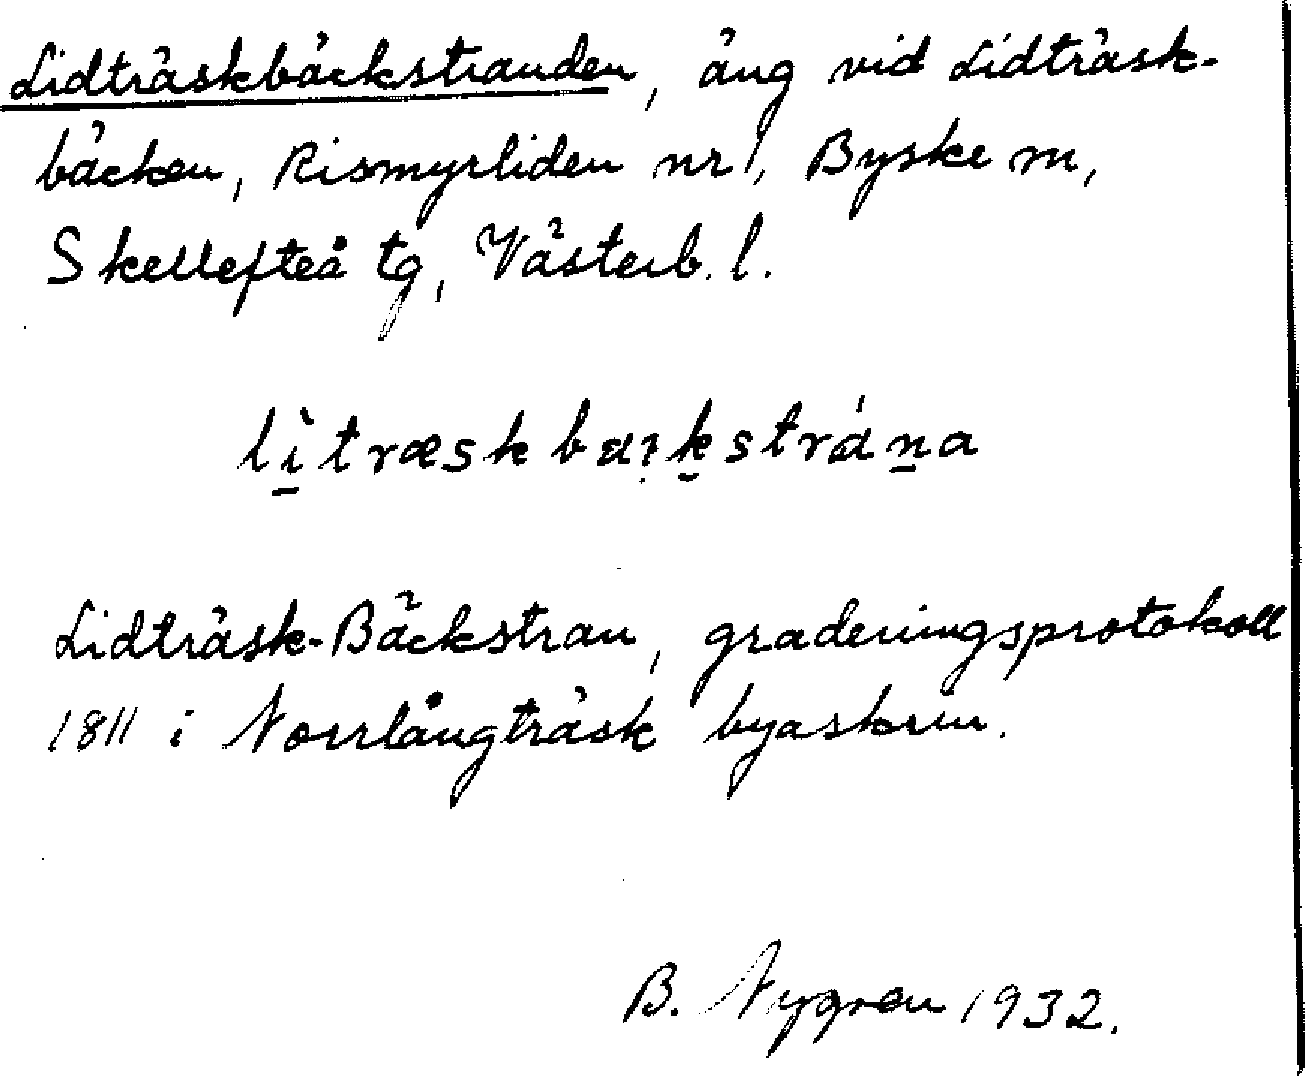 Lidträskbäckstranden, äng vid Lidträsk-
bäcken, Rismyrliden nr 1, Byske sn,
Skellefteå tg, Västerb. l.
Lidträsk-Bäckstran, graderingsprotokoll
1811 i Norrlångträsk byaskrin.
B. Nygren 1932.